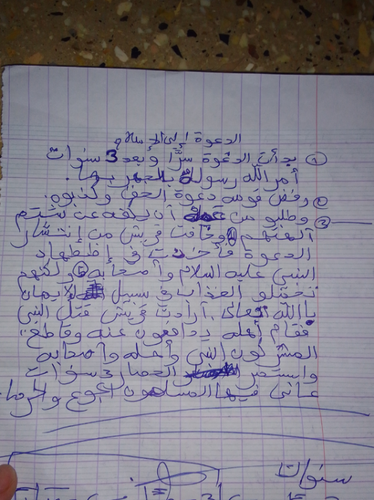 الدعوة إلى الإسلام
① بدأت الدعوة سرًّا وبعد 3 سنوات
أمر الله رسوله بالجهر بها.
② رفض قومه دعوة الحق وكذبوه.
③ وطلبو من أن يكفه عن شتم
آلهتهم وخافت قريش من إنتشار
الدعوة فأخذت في إظطهاد
النبي عليه السلام وأصحابه ولكنهم
تحملو العذاب في سبيل الإيمان
بالله تعالى أرادت قريش قتل النبي
فقام أهله يدافعون عنه وقاطع
المشركون النبي وأهله وأصحابه
واستمر الحصار 3 سنوات
عانى فيها المسلمون الجوع والحرما
سنوات